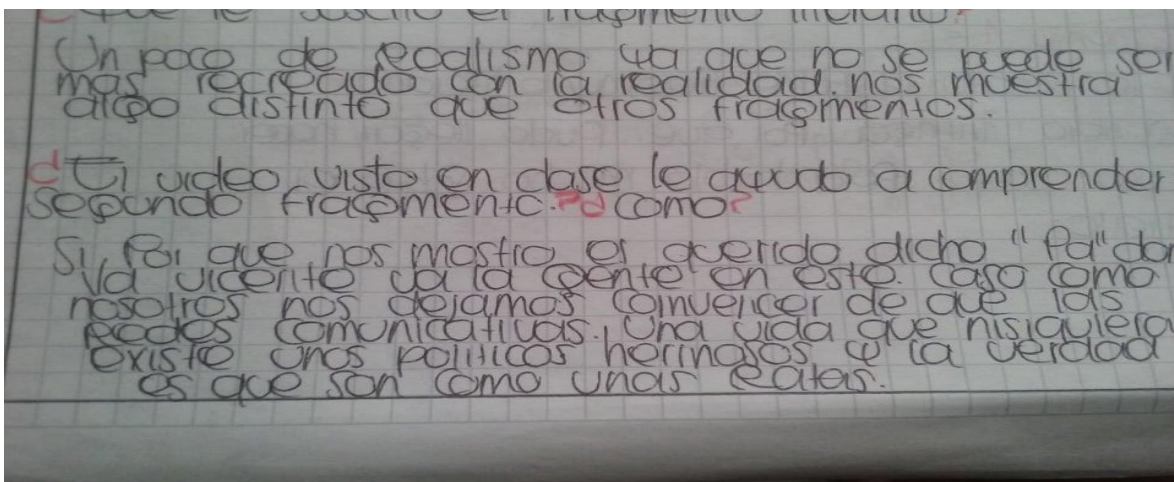 Un poco de realismo ya que no se puede ser
mas recreado con la realidad. nos muestra
algo distinto que otros fragmentos.
¿El video visto en clase le ayudo a comprender
segundo fragmento? ¿como?
Si, Por que nos mostro el querido dicho "Pa" don
Va vicente va la gente en este caso como
nosotros nos dejamos coinvencer de que las
redes comunicativas. Una vida que nisiquiera
existe unos politicos hermosos y la verdad
es que son como unas ratas.